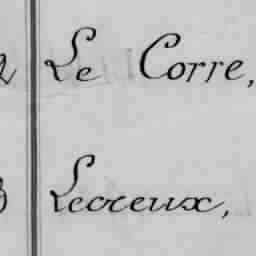 Le Corre,
Lecreux,